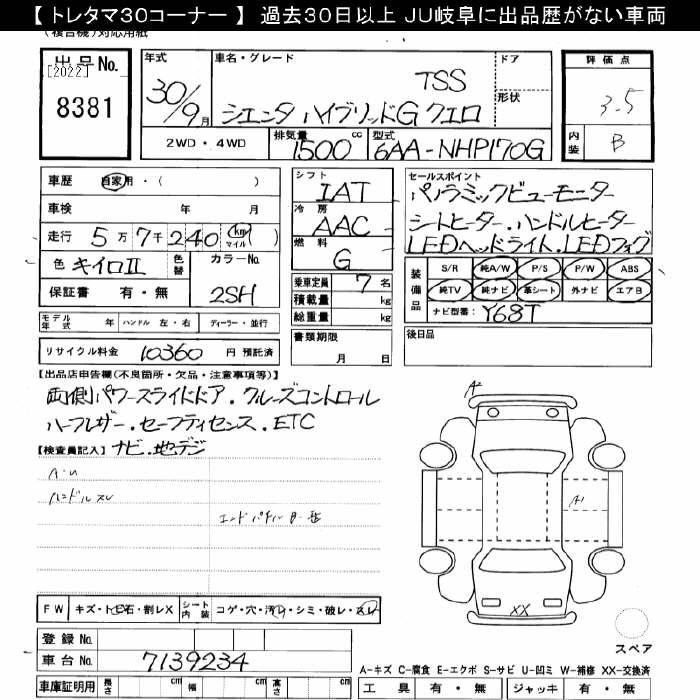 【 トレタマ30コーナー 】 過去30日以上 JU岐阜に出品歴がない車両
(複合機)対応用紙
出品No.
[2022]
8381
年式
30/9月
車名・グレード
TSS
シエンタ ハイブリッドG クエロ
ドア
形状
評価点
3.5
内装
B
2WD・4WD
排気量
1500 cc
型式
6AA-NHP170G
車歴 自家用・( )
車検 年 月
走行 5万7千240 (km マイル)( )
色 キイロII 色替 カラーNo.
2SH
保証書 有・無
シフト
IAT
冷房
AAC
燃料
G
乗車定員 7名
積載量 kg
総重量 kg
セールスポイント
パノラミックビューモニター
シートヒーター.ハンドルヒーター
LEDヘッドライト.LEDフォグ
装備品
S/R 純A/W P/S P/W ABS
純TV 純ナビ 革シート 外ナビ エアB
ナビ型番: Y68T
モデル年式 年 ハンドル 左・右 ディーラー・並行
リサイクル料金 10360 円 預託済
書類期限
月 日
後日品
【出品店申告欄(不良箇所・欠品・注意事項等)】
両側パワースライドドア.クルーズコントロール
ハーフレザー.セーフティセンス.ETC
【検査員記入】ナビ.地デジ
A・U
ハンドルスレ
A2
A1
XX
FW キズ・トビ石・割レX シート内装 コゲ・穴・汚レ・シミ・破レ・スレ
登録No.
車台No. 7139234
車庫証明用 長さ cm 幅 cm 高さ cm
スペア
A-キズ C-腐食 E-エクボ S-サビ U-凹ミ W-補修 XX-交換済
工具 有・無 ジャッキ 有・無